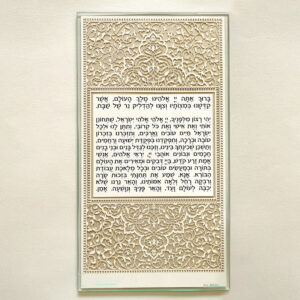 ברוך אתה יי אלהינו מלך העולם, אשר
קדשנו במצותיו וצונו להדליק נר של שבת.
יהי רצון מלפניך, יי אלהי ישראל, שתחונן
אותי ואת אישי ואת כל קרובי, ותתן לנו ולכל
ישראל חיים טובים וארוכים, ותזכרנו בזכרון
טובה וברכה, ותפקדנו בפקודת ישועה ורחמים,
ותשכן שכינתך בינינו, וזכנו לגדל בנים ובני בנים
חכמים ונבונים אוהבי יי, יראי אלהים, אנשי
אמת זרע קדש, ביי דבקים ומאירים את העולם
בתורה ובמעשים טובים ובכל מלאכת עבודת
הבורא. אנא, שמע את תחנתי בזכות שרה
רבקה רחל ולאה אמותינו, והאר נרנו שלא
יכבה לעולם ועד, והאר פניך ונושעה. אמן.